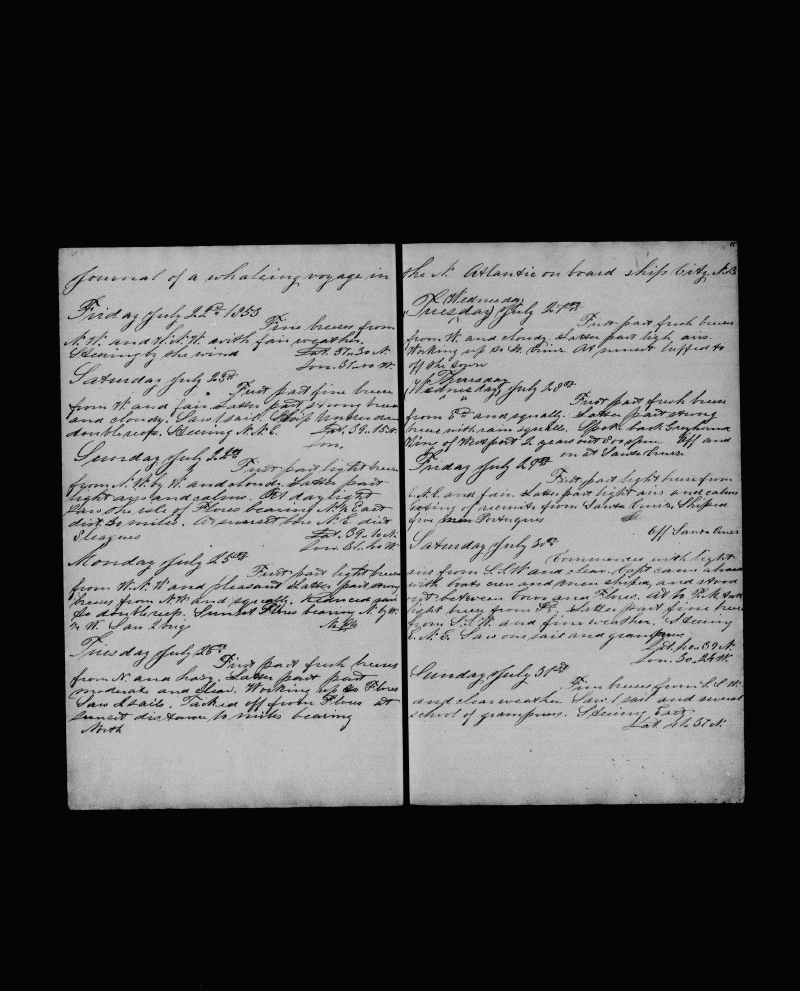 Journal of a whaleing voyage in
Friday July 22nd 1853
Fine breeses from
N.W. and W.N.W. with fair weather.
Steering by the wind Lat. 37.30 N.
Lon. 31.00 W.
Saturday July 23rd
First part fine breeses
from W. and fair. Latter part strong breeses
and cloudy. Saw 1 sail. Ship under
doublereefs. Steering N.N.E. Lat. 39.15 N.
Lon.
Sunday July 24th
First part light breeses
from N.W. by W. and cloudy. Latter part
light airs and calms. At day light
Saw the isle of Flores bearing N. East
dist. miles. At sunset bore N.E. dist
8 leagues Lat. 39. N.
Lon. 31. W.
Monday July 25th
First part light breeses
from W.N.W and pleasant Latter part strong
breeses from N.W and squally. Reduced sail
to doublereefs. Sunset Flores bearing N. by W.
W. Saw 2 brigs
Tuesday July 26th
First part fresh breeses
from N. and hazy. Latter part part
moderate and clear. Working up to Flores
Saw 2 sails. Tacked off from Flores at
sunset distance miles bearing
North
11
the N. Atlantic on board ship City, N.B
Wednesday
Tuesday July 27th
First part fresh breeses
from W. and cloudy. Latter part light airs.
Working up to St. Cruz. At sunset luffed to
off the town
Thursday
Wednesday July 28th
First part fresh breese
from and squally. Latter part strong
breeses with rain squalls. Spoke bark Greyhound
of Westport 2 years out 800 sperm. Off and
on at Santa Cruse
Friday July 29th
First part light breese from
E.N.E. and fair. Latter part light airs and calms
boating of recruits from Santa Cruz. Shiped
five men Portuguees
Off Santa Cruse
Saturday July 30th
Commences with light
airs from S.S.W and clear. Capt. came aboard
with boats crew and men shiped, and stood
out between Corvo and Flores. At 10 P.M. took
light breese from Latter part fine breese
from S.S.W. and fine weather. Steering
E.N.E. Saw one sail and grampuses
Lat. 40.39 N.
Lon. 30.24 W.
Sunday July 31st
Fine breeses from S.S.W.
and clear weather Saw 1 sail and several
school of grampuses. Steering East
Lat. 41.37 N.